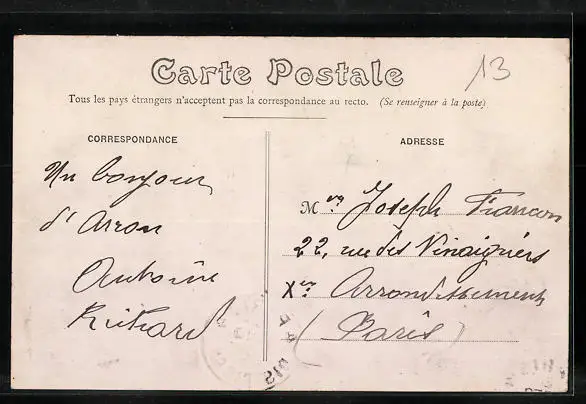 Carte Postale
13
Tous les pays étrangers n'acceptent pas la correspondance au recto. (Se renseigner à la poste)
CORRESPONDANCE
Un bonjour
d'Arron
Antoine
Richard
ADRESSE
M. Joseph Francon
22, rue des Vinaigriers
Xe Arrondissement
(Paris)